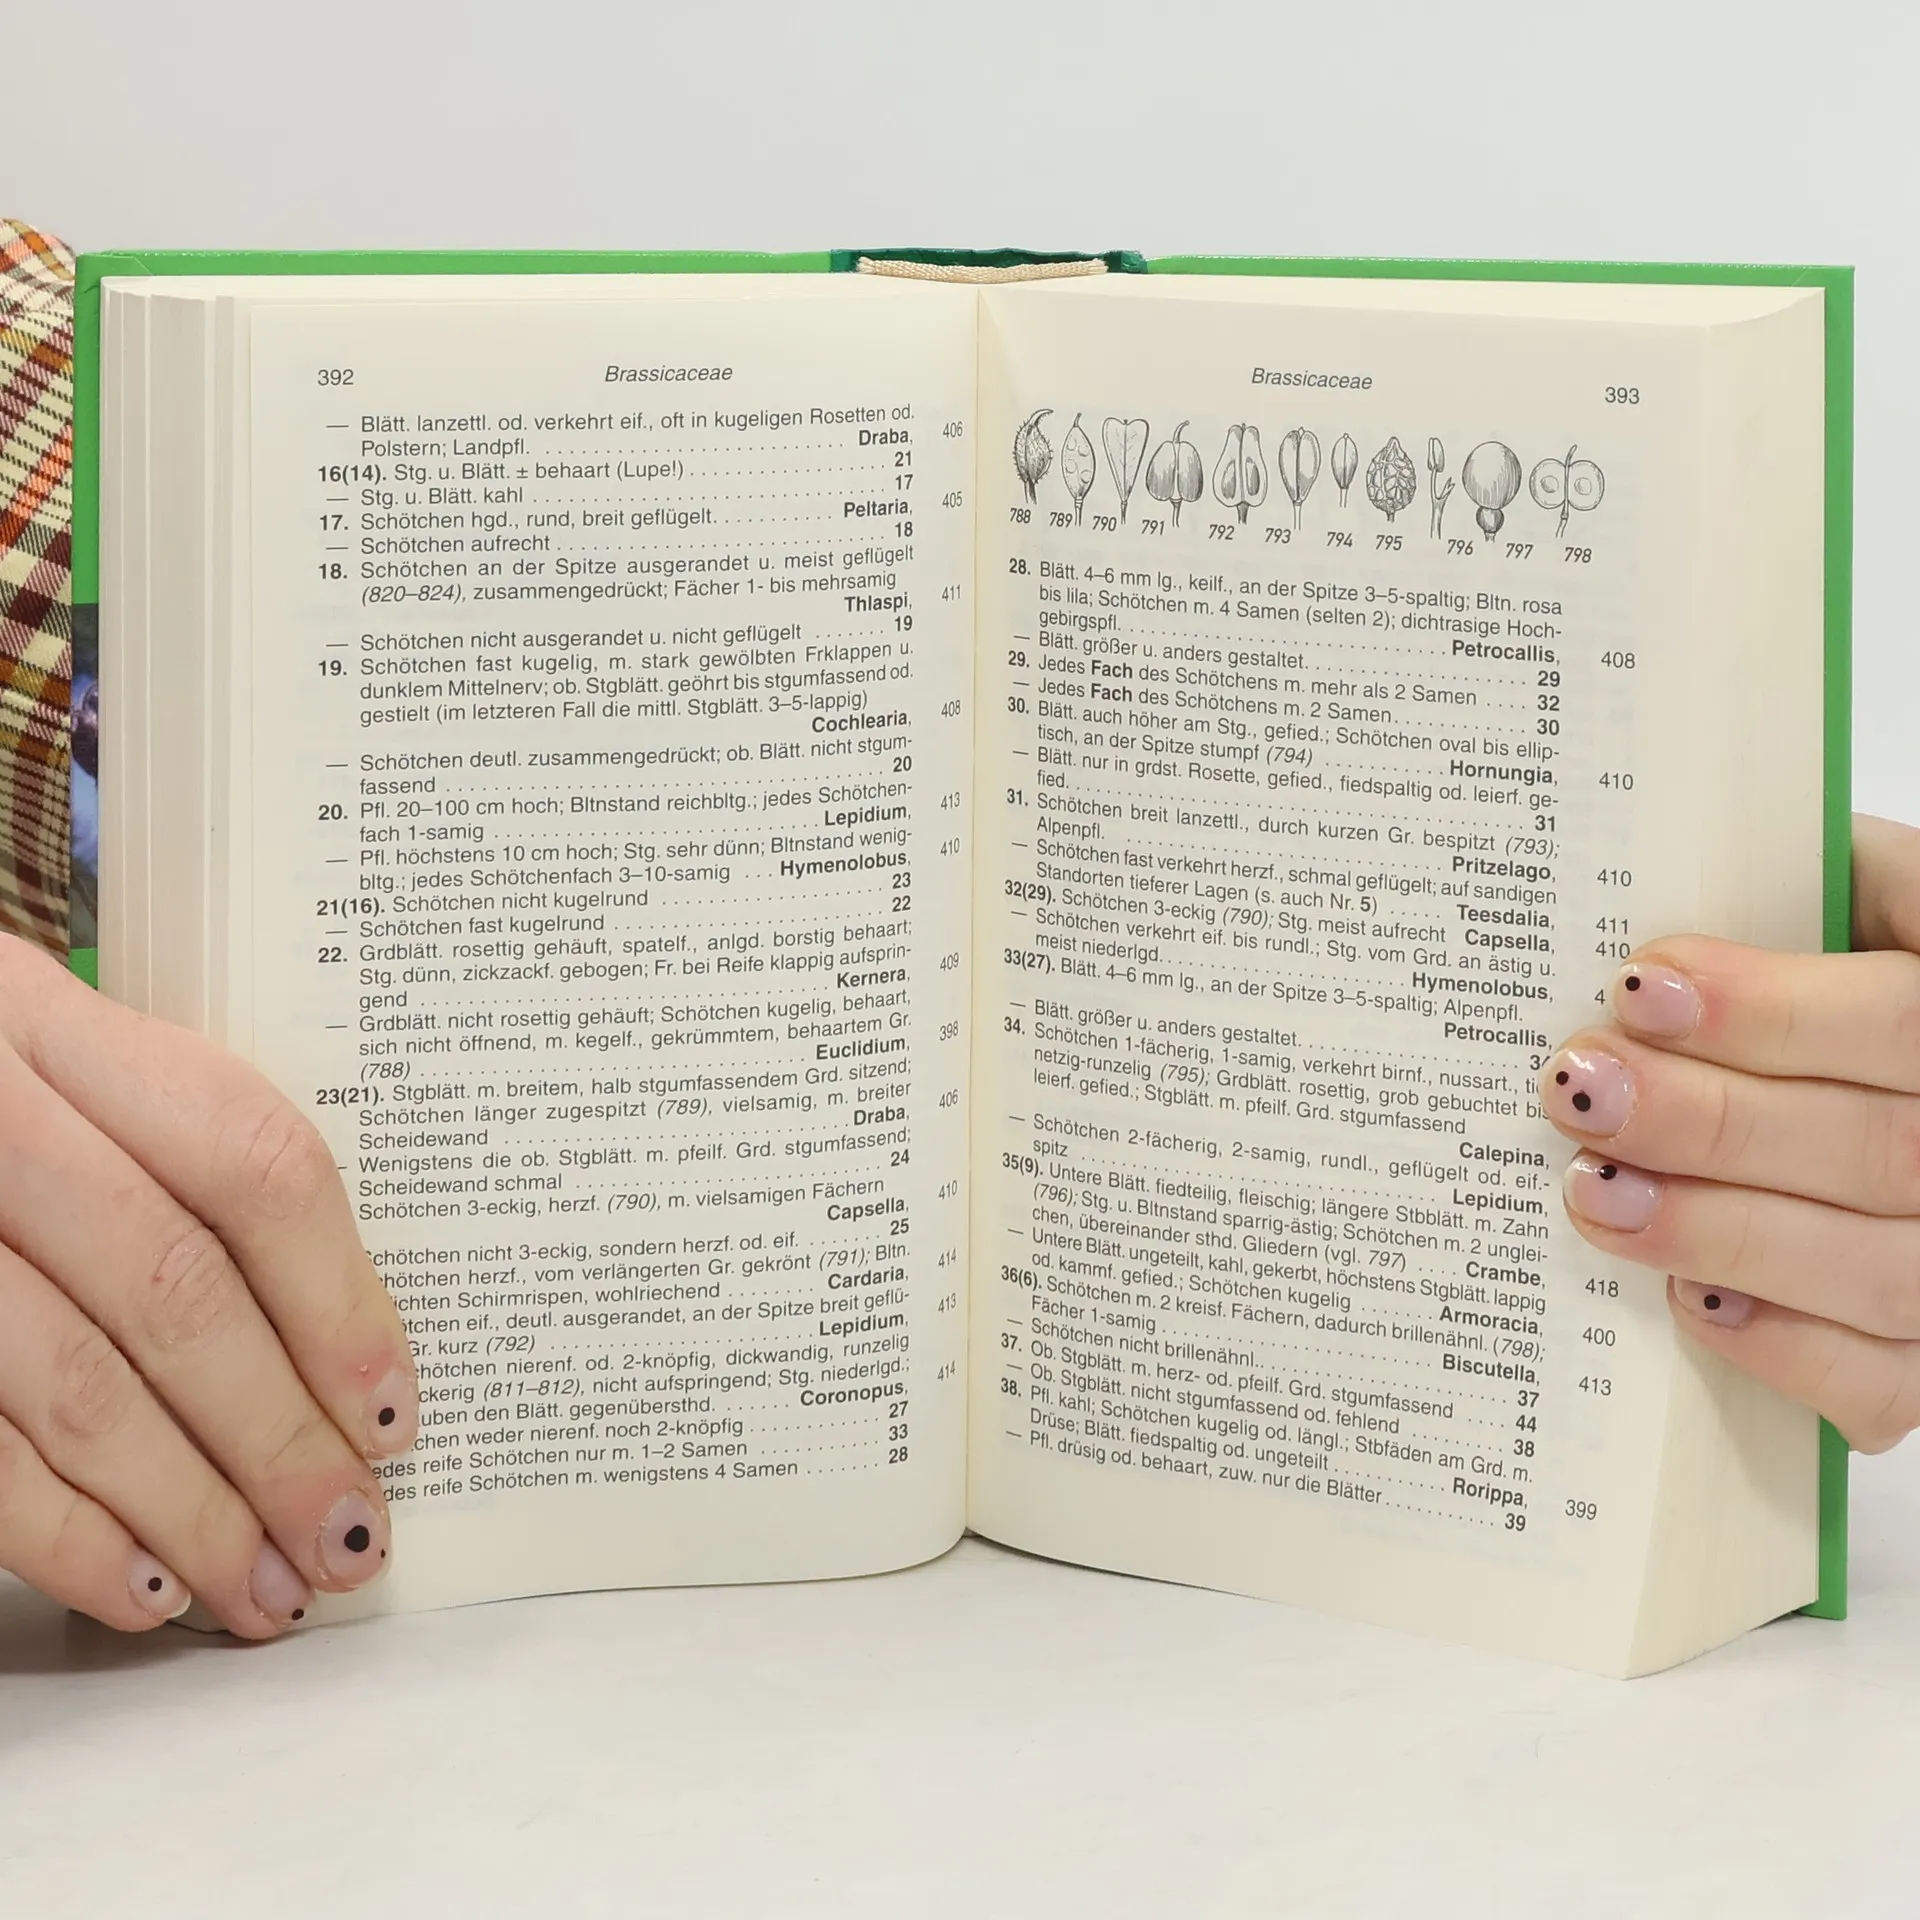 392
Brassicaceae
— Blätt. lanzettl. od. verkehrt eif., oft in kugeligen Rosetten od.
Polstern; Landpfl. . . . . . . . . . . . . . . . . . . . . . . . Draba, 406
16(14). Stg. u. Blätt. ± behaart (Lupe!) . . . . . . . . . . . . . . . . . . 21
— Stg. u. Blätt. kahl . . . . . . . . . . . . . . . . . . . . . . . . . . . 17
17. Schötchen hgd., rund, breit geflügelt. . . . . . . . . . . . Peltaria, 405
— Schötchen aufrecht . . . . . . . . . . . . . . . . . . . . . . . . . . 18
18. Schötchen an der Spitze ausgerandet u. meist geflügelt
(820–824), zusammengedrückt; Fächer 1- bis mehrsamig
Thlaspi, 411
— Schötchen nicht ausgerandet u. nicht geflügelt . . . . . . . 19
19. Schötchen fast kugelig, m. stark gewölbten Frklappen u.
dunklem Mittelnerv; ob. Stgblätt. geöhrt bis stgumfassend od.
gestielt (im letzteren Fall die mittl. Stgblätt. 3–5-lappig)
Cochlearia, 408
— Schötchen deutl. zusammengedrückt; ob. Blätt. nicht stgum-
fassend . . . . . . . . . . . . . . . . . . . . . . . . . . . . . . . . . . 20
20. Pfl. 20–100 cm hoch; Bltnstand reichbltg.; jedes Schötchen-
fach 1-samig . . . . . . . . . . . . . . . . . . . . . . . . . . Lepidium, 413
— Pfl. höchstens 10 cm hoch; Stg. sehr dünn; Bltnstand wenig-
bltg.; jedes Schötchenfach 3–10-samig . . . Hymenolobus, 410
21(16). Schötchen nicht kugelrund . . . . . . . . . . . . . . . . . . . . 23
— Schötchen fast kugelrund . . . . . . . . . . . . . . . . . . . . . . 22
22. Grdblätt. rosettig gehäuft, spatelf., anlgd. borstig behaart;
Stg. dünn, zickzackf. gebogen; Fr. bei Reife klappig aufsprin-
gend . . . . . . . . . . . . . . . . . . . . . . . . . . . . . . . . Kernera, 409
— Grdblätt. nicht rosettig gehäuft; Schötchen kugelig, behaart,
sich nicht öffnend, m. kegelf., gekrümmtem, behaartem Gr.
(788) . . . . . . . . . . . . . . . . . . . . . . . . . . . . . . Euclidium, 398
23(21). Stgblätt. m. breitem, halb stgumfassendem Grd. sitzend;
Schötchen länger zugespitzt (789), vielsamig, m. breiter
Scheidewand . . . . . . . . . . . . . . . . . . . . . . . . . . . Draba, 406
– Wenigstens die ob. Stgblätt. m. pfeilf. Grd. stgumfassend;
Scheidewand schmal . . . . . . . . . . . . . . . . . . . . . . . . . 24
Schötchen 3-eckig, herzf. (790), m. vielsamigen Fächern
Capsella, 410
Schötchen nicht 3-eckig, sondern herzf. od. eif. . . . . . . . . 25
herzf., vom verlängerten Gr. gekrönt (791); Bltn.
Schirmrispen, wohlriechend . . . . . . . . Cardaria, 414
eif., deutl. ausgerandet, an der Spitze breit geflü-
Gr. kurz (792) . . . . . . . . . . . . . . . . . . . . . . . Lepidium, 413
nierenf. od. 2-knöpfig, dickwandig, runzelig
(811–812), nicht aufspringend; Stg. niederlgd.;
den Blätt. gegenübersthd. . . . . . . . Coronopus, 414
weder nierenf. noch 2-knöpfig . . . . . . . . . . . . . 27
reife Schötchen nur m. 1–2 Samen . . . . . . . . . . . . 33
reife Schötchen m. wenigstens 4 Samen . . . . . . . 28
Brassicaceae
393
788 789 790 791 792 793 794 795 796 797 798
28. Blätt. 4–6 mm lg., keilf., an der Spitze 3–5-spaltig; Bltn. rosa
bis lila; Schötchen m. 4 Samen (selten 2); dichtrasige Hoch-
gebirgspfl. . . . . . . . . . . . . . . . . . . . . . . . . . . . Petrocallis, 408
— Blätt. größer u. anders gestaltet. . . . . . . . . . . . . . . . . . . 29
29. Jedes Fach des Schötchens m. mehr als 2 Samen . . . . 32
— Jedes Fach des Schötchens m. 2 Samen. . . . . . . . . . . . 30
30. Blätt. auch höher am Stg., gefied.; Schötchen oval bis ellip-
tisch, an der Spitze stumpf (794) . . . . . . . . . . . Hornungia, 410
— Blätt. nur in grdst. Rosette, gefied., fiedspaltig od. leierf. ge-
fied. . . . . . . . . . . . . . . . . . . . . . . . . . . . . . . . . . . . . . 31
31. Schötchen breit lanzettl., durch kurzen Gr. bespitzt (793);
Alpenpfl. . . . . . . . . . . . . . . . . . . . . . . . . . . . . Pritzelago, 410
— Schötchen fast verkehrt herzf., schmal geflügelt; auf sandigen
Standorten tieferer Lagen (s. auch Nr. 5) . . . . . Teesdalia, 411
32(29). Schötchen 3-eckig (790); Stg. meist aufrecht Capsella, 410
— Schötchen verkehrt eif. bis rundl.; Stg. vom Grd. an ästig u.
meist niederlgd. . . . . . . . . . . . . . . . . . . . . . Hymenolobus,
33(27). Blätt. 4–6 mm lg., an der Spitze 3–5-spaltig; Alpenpfl.
Petrocallis,
— Blätt. größer u. anders gestaltet. . . . . . . . . . . . . . . . . . .
34. Schötchen 1-fächerig, 1-samig, verkehrt birnf., nussart.,
netzig-runzelig (795); Grdblätt. rosettig, grob gebuchtet bis
leierf. gefied.; Stgblätt. m. pfeilf. Grd. stgumfassend
Calepina,
— Schötchen 2-fächerig, 2-samig, rundl., geflügelt od. eif.-
spitz . . . . . . . . . . . . . . . . . . . . . . . . . . . . . . . . . Lepidium,
35(9). Untere Blätt. fiedteilig, fleischig; längere Stbblätt. m. Zahn
(796); Stg. u. Bltnstand sparrig-ästig; Schötchen m. 2 unglei-
chen, übereinander sthd. Gliedern (vgl. 797) . . . . Crambe, 418
— Untere Blätt. ungeteilt, kahl, gekerbt, höchstens Stgblätt. lappig
od. kammf. gefied.; Schötchen kugelig . . . . . . . Armoracia, 400
36(6). Schötchen m. 2 kreisf. Fächern, dadurch brillenähnl. (798);
Fächer 1-samig . . . . . . . . . . . . . . . . . . . . . . . . . Biscutella, 413
— Schötchen nicht brillenähnl. . . . . . . . . . . . . . . . . . . . . . . 37
37. Ob. Stgblätt. m. herz- od. pfeilf. Grd. stgumfassend . . . . 44
— Ob. Stgblätt. nicht stgumfassend od. fehlend . . . . . . . . . 38
38. Pfl. kahl; Schötchen kugelig od. längl.; Stbfäden am Grd. m.
Drüse; Blätt. fiedspaltig od. ungeteilt . . . . . . . . . . Rorippa, 399
— Pfl. drüsig od. behaart, zuw. nur die Blätter . . . . . . . . . . 39